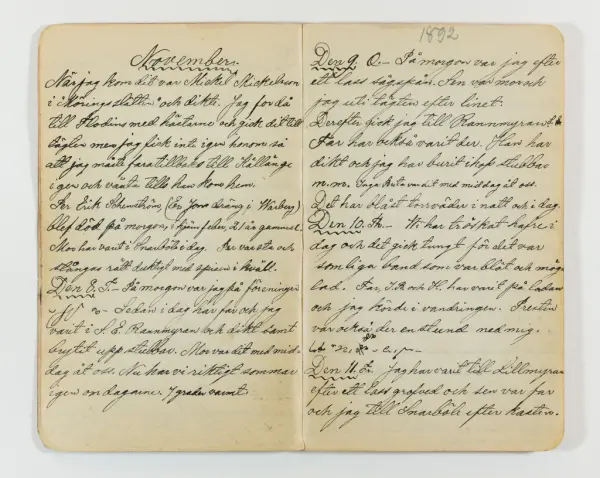 November.
När jag kom dit var Mickel Mickelsson
och dikte. Jag for då
till Flodins med hästarne och gick dit till
tågten men jag fick inte igen honom så
att jag måste fara tillbaks till Källänge
igen och vänta tills han kom hem.
Per Erik Sehlström, (Er Jons dräng i Warberg)
blef död på morgon, i hjernfeber, 21 år gammal.
Mor har varit i Snarböle i dag. Far var sta och
stångas rätt duktigt med spiran i kväll.
Den 8. T. På morgon var jag på föreningen
Sedan i dag har far och jag
varit i S. E. Rannmyran och dikt samt
brytit upp stubbar. Mor var dit med mid-
dag åt oss. Nu har vi riktigt sommar
igen om dagarne. 7 grader varmt
1892
Den 9. O. På morgon var jag efter
ett lass sågspån. Sen var mor och
jag uti tägten efter linet.
Derefter gick jag till Rannmyran.
Far har också varit der. Han har
dikt och jag har burit ihop stubbar
m.m. Inga Brita var dit med middag åt oss.
Det har blåst torrväder i natt och i dag.
Den 10. Th. Vi har tröskat hafre i
dag och det gick tungt för det var
somliga band som var blöt och mög-
lad. Far, I.B. och H. har varit på ladan
och jag körde i vandringen. Presten
var också der en stund med mig.
Den 11. F. Jag har varit till Lillmyran
efter ett lass grofved och sen var far
och jag till Snarböle efter kasten.